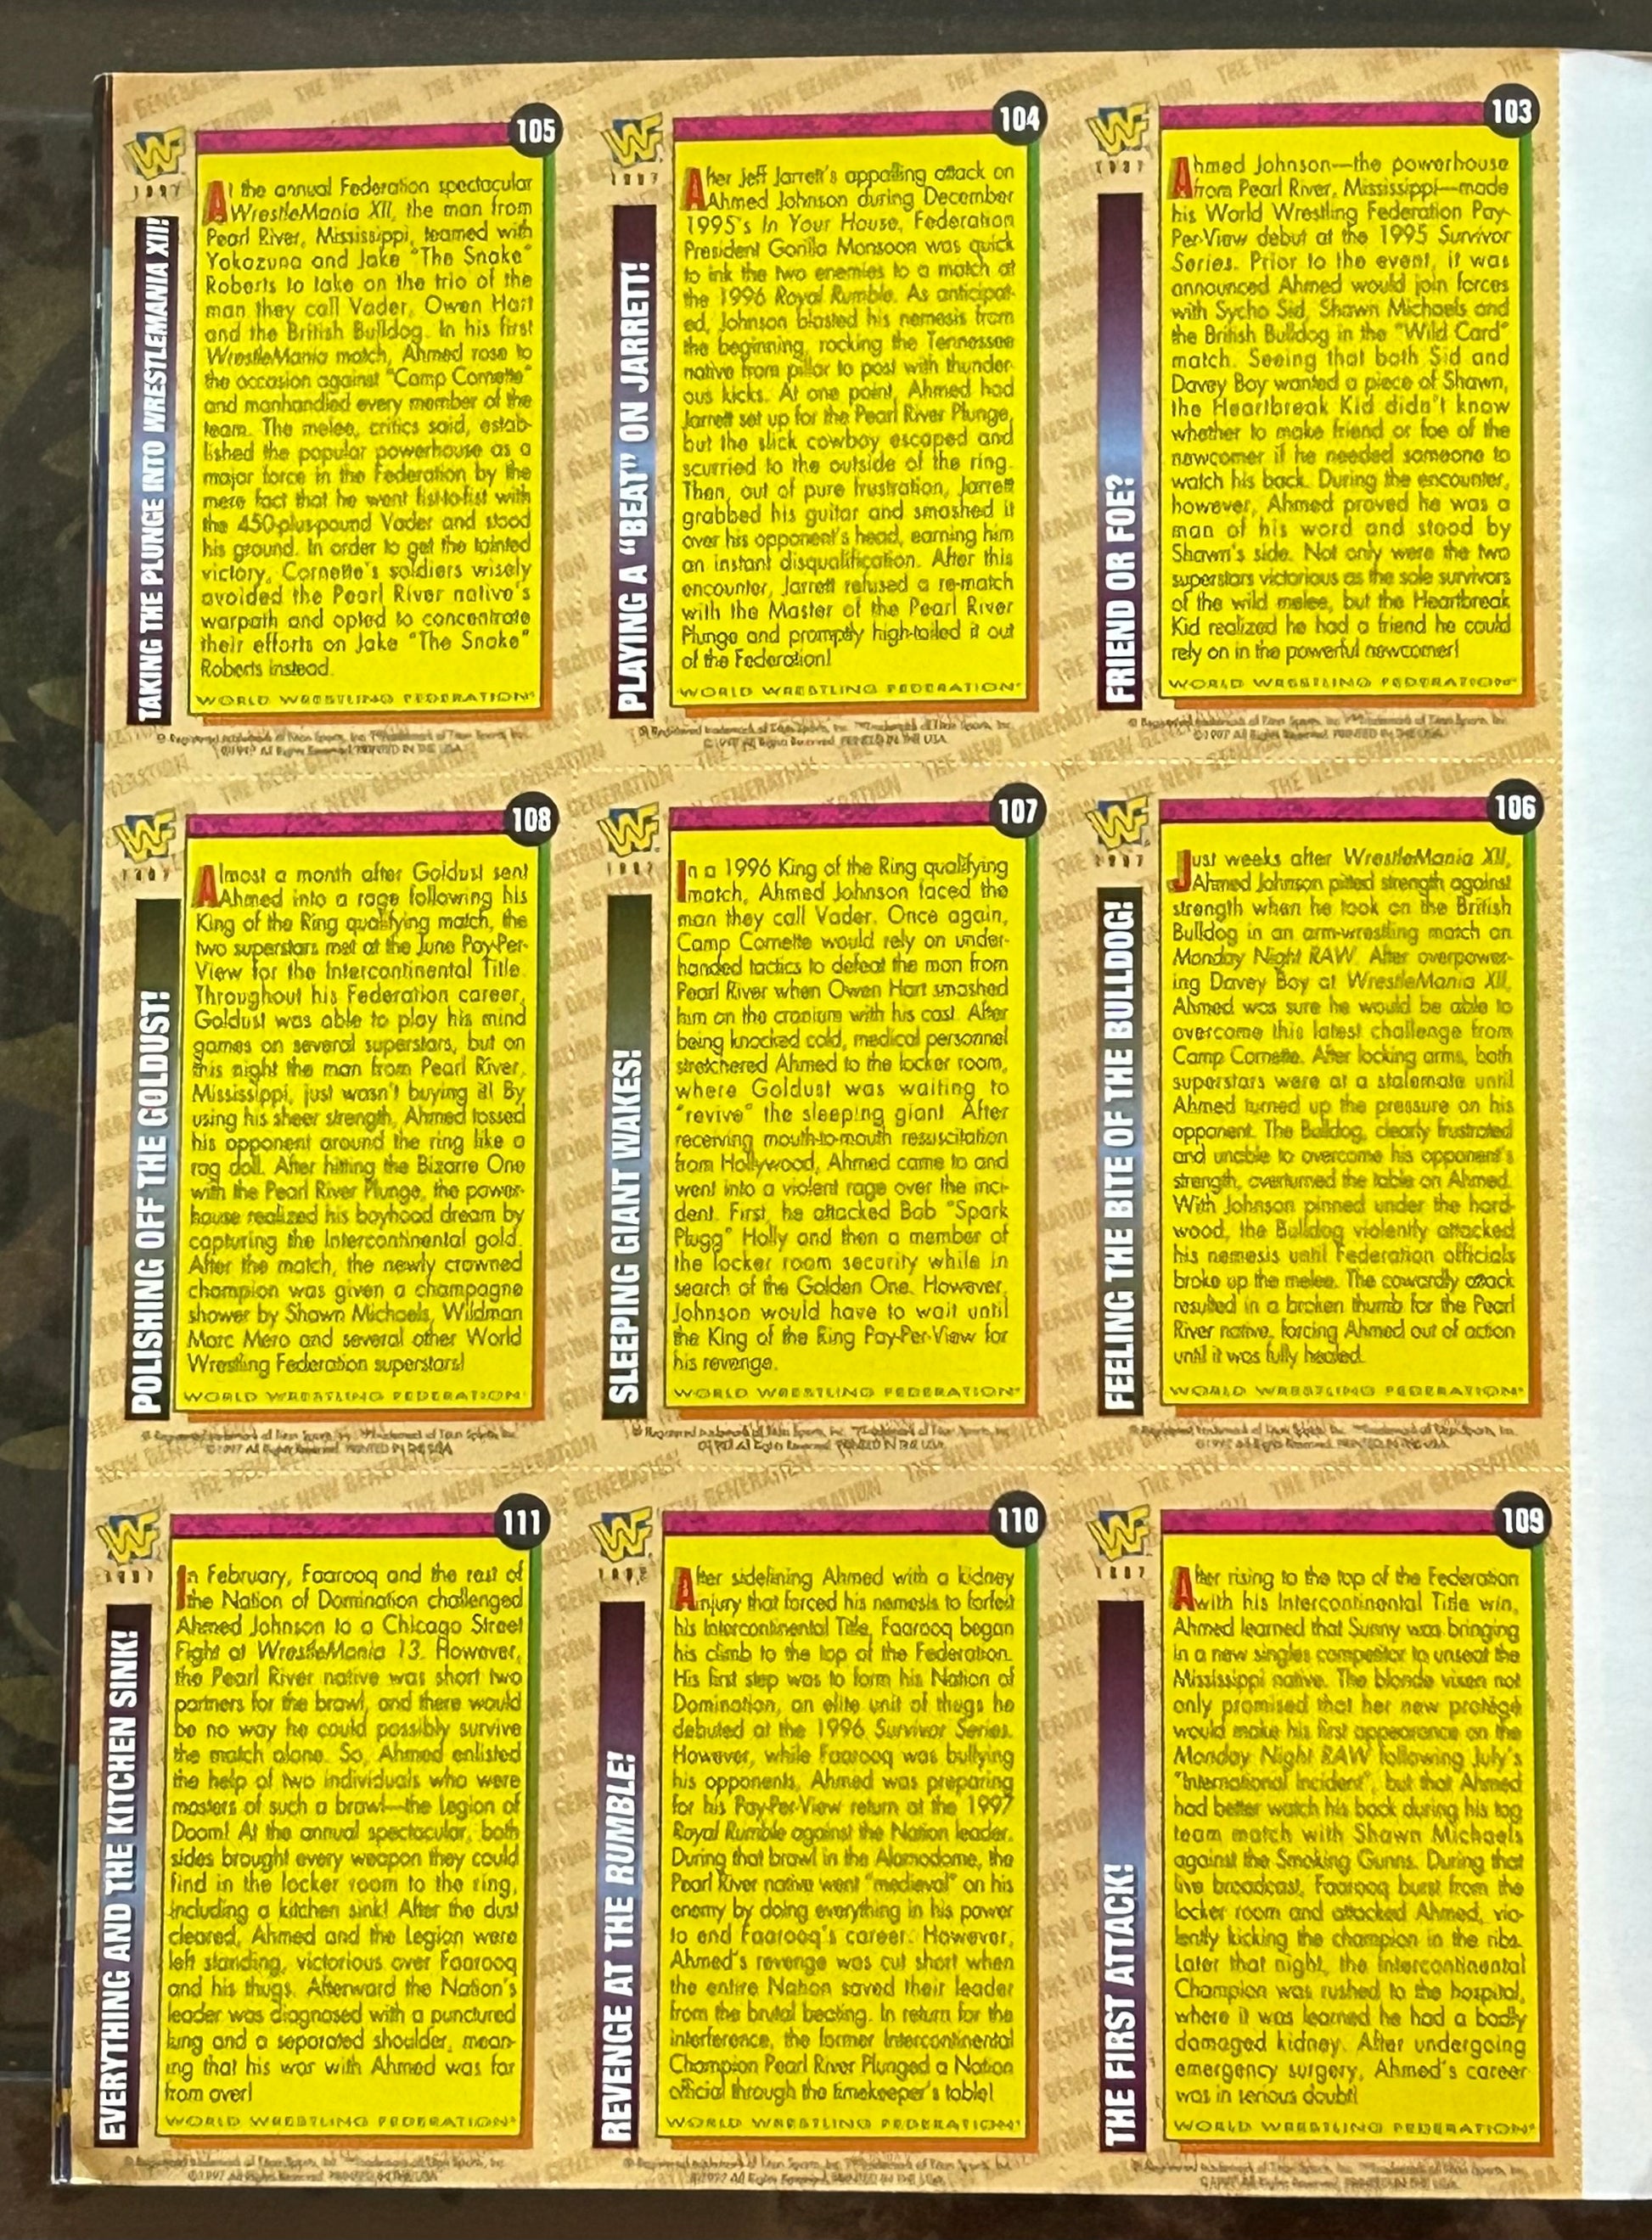 105
WF
1997
TAKING THE PLUNGE INTO WRESTLEMANIA XII!
At the annual Federation spectacular
WrestleMania XII, the man from
Pearl River, Mississippi, teamed with
Yokozuna and Jake "The Snake"
Roberts to take on the trio of the
man they call Vader, Owen Hart
and the British Bulldog. In his first
WrestleMania match, Ahmed rose to
the occasion against "Camp Cornette"
and manhandled every member of the
team. The melee, critics said, estab-
lished the popular powerhouse as a
major force in the Federation by the
mere fact that he went fist-to-fist with
the 450-plus-pound Vader and stood
his ground. In order to get the tainted
victory, Cornette's soldiers wisely
avoided the Pearl River native's
warpath and opted to concentrate
their efforts on Jake "The Snake"
Roberts instead.
WORLD WRESTLING FEDERATION
104
WF
1997
PLAYING A "BEAT" ON JARRETT!
After Jeff Jarrett's appalling attack on
Ahmed Johnson during December
1995's In Your House, Federation
President Gorilla Monsoon was quick
to ink the two enemies to a match at
the 1996 Royal Rumble. As anticipat-
ed, Johnson blasted his nemesis from
the beginning, rocking the Tennessee
native from pillar to post with thunder-
ous kicks. At one point, Ahmed had
Jarrett set up for the Pearl River Plunge,
but the slick cowboy escaped and
scurried to the outside of the ring.
Then, out of pure frustration, Jarrett
grabbed his guitar and smashed it
over his opponent's head, earning him
an instant disqualification. After this
encounter, Jarrett refused a re-match
with the Master of the Pearl River
Plunge and promptly high-tailed it out
of the Federation!
WORLD WRESTLING FEDERATION
103
WF
1997
FRIEND OR FOE?
Ahmed Johnson—the powerhouse
from Pearl River, Mississippi—made
his World Wrestling Federation Pay-
Per-View debut at the 1995 Survivor
Series. Prior to the event, it was
announced Ahmed would join forces
with Sycho Sid, Shawn Michaels and
the British Bulldog in the "Wild Card"
match. Seeing that both Sid and
Davey Boy wanted a piece of Shawn,
the Heartbreak Kid didn't know
whether to make friend or foe of the
newcomer if he needed someone to
watch his back. During the encounter,
however, Ahmed proved he was a
man of his word and stood by
Shawn's side. Not only were the two
superstars victorious as the sole survivors
of the wild melee, but the Heartbreak
Kid realized he had a friend he could
rely on in the powerful newcomer!
WORLD WRESTLING FEDERATION
108
WF
1997
POLISHING OFF THE GOLDUST!
Almost a month after Goldust sent
Ahmed into a rage following his
King of the Ring qualifying match, the
two superstars met at the June Pay-Per-
View for the Intercontinental Title.
Throughout his Federation career,
Goldust was able to play his mind
games on several superstars, but on
this night the man from Pearl River,
Mississippi, just wasn't buying it! By
using his sheer strength, Ahmed tossed
his opponent around the ring like a
rag doll. After hitting the Bizarre One
with the Pearl River Plunge, the power-
house realized his boyhood dream by
capturing the Intercontinental gold.
After the match, the newly crowned
champion was given a champagne
shower by Shawn Michaels, Wildman
Marc Mero and several other World
Wrestling Federation superstars!
WORLD WRESTLING FEDERATION
107
WF
1997
SLEEPING GIANT WAKES!
In a 1996 King of the Ring qualifying
match, Ahmed Johnson faced the
man they call Vader. Once again,
Camp Cornette would rely on under-
handed tactics to defeat the man from
Pearl River when Owen Hart smashed
him on the cranium with his cast. After
being knocked cold, medical personnel
stretchered Ahmed to the locker room,
where Goldust was waiting to
"revive" the sleeping giant. After
receiving mouth-to-mouth resuscitation
from Hollywood, Ahmed came to and
went into a violent rage over the inci-
dent. First, he attacked Bob "Spark
Plugg" Holly and then a member of
the locker room security while in
search of the Golden One. However,
Johnson would have to wait until
the King of the Ring Pay-Per-View for
his revenge.
WORLD WRESTLING FEDERATION
106
WF
1997
FEELING THE BITE OF THE BULLDOG!
Just weeks after WrestleMania XII,
Ahmed Johnson pitted strength against
strength when he took on the British
Bulldog in an arm-wrestling match on
Monday Night RAW. After overpower-
ing Davey Boy at WrestleMania XII,
Ahmed was sure he would be able to
overcome this latest challenge from
Camp Cornette. After locking arms, both
superstars were at a stalemate until
Ahmed turned up the pressure on his
opponent. The Bulldog, clearly frustrated
and unable to overcome his opponent's
strength, overturned the table on Ahmed.
With Johnson pinned under the hard-
wood, the Bulldog violently attacked
his nemesis until Federation officials
broke up the melee. The cowardly attack
resulted in a broken thumb for the Pearl
River native, forcing Ahmed out of action
until it was fully healed.
WORLD WRESTLING FEDERATION
111
WF
1997
EVERYTHING AND THE KITCHEN SINK!
In February, Faarooq and the rest of
the Nation of Domination challenged
Ahmed Johnson to a Chicago Street
Fight at WrestleMania 13. However,
the Pearl River native was short two
partners for the brawl, and there would
be no way he could possibly survive
the match alone. So, Ahmed enlisted
the help of two individuals who were
masters of such a brawl—the Legion of
Doom! At the annual spectacular, both
sides brought every weapon they could
find in the locker room to the ring,
including a kitchen sink! After the dust
cleared, Ahmed and the Legion were
left standing, victorious over Faarooq
and his thugs. Afterward the Nation's
leader was diagnosed with a punctured
lung and a separated shoulder, mean-
ing that his war with Ahmed was far
from over!
WORLD WRESTLING FEDERATION
110
WF
1997
REVENGE AT THE RUMBLE!
After sidelining Ahmed with a kidney
injury that forced his nemesis to forfeit
his Intercontinental Title, Faarooq began
his climb to the top of the Federation.
His first step was to form his Nation of
Domination, an elite unit of thugs he
debuted at the 1996 Survivor Series.
However, while Faarooq was bullying
his opponents, Ahmed was preparing
for his Pay-Per-View return at the 1997
Royal Rumble against the Nation leader.
During that brawl in the Alamodome, the
Pearl River native went "medieval" on his
enemy by doing everything in his power
to end Faarooq's career. However,
Ahmed's revenge was cut short when
the entire Nation saved their leader
from the brutal beating. In return for the
interference, the former Intercontinental
Champion Pearl River Plunged a Nation
official through the timekeeper's table!
WORLD WRESTLING FEDERATION
109
WF
1997
THE FIRST ATTACK!
After rising to the top of the Federation
with his Intercontinental Title win,
Ahmed learned that Sunny was bringing
in a new singles competitor to unseat the
Mississippi native. The blonde vixen not
only promised that her new protégé
would make his first appearance on the
Monday Night RAW following July's
"International Incident", but that Ahmed
had better watch his back during his tag
team match with Shawn Michaels
against the Smoking Gunns. During that
live broadcast, Faarooq burst from the
locker room and attacked Ahmed, vio-
lently kicking the champion in the ribs.
Later that night, the Intercontinental
Champion was rushed to the hospital,
where it was learned he had a badly
damaged kidney. After undergoing
emergency surgery, Ahmed's career
was in serious doubt!
WORLD WRESTLING FEDERATION